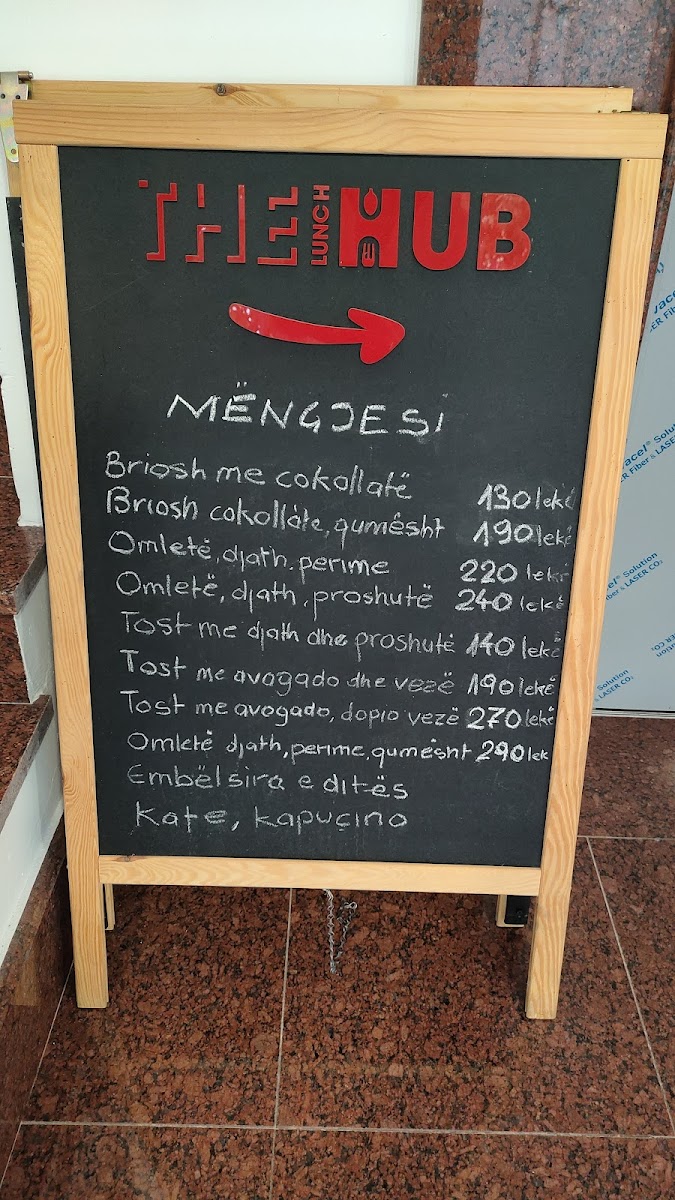 THE LUNCH HUB
MËNGJESi
Briosh me cokollatë 130 lekë
Briosh cokollate, qumësht 190 lekë
Omletë, djath, perime 220 lekë
Omletë, djath, proshutë 240 lekë
Tost me djath dhe proshutë 140 lekë
Tost me avogado dhe vezë 190 lekë
Tost me avogado, dopio vezë 270 lekë
Omletë djath, perime, qumësht 290 lek
Embëlsira e ditës
Kafe, kapuçino
vacel® Solution
ER Fiber & LASER CO₂
Solution
Fiber & LASER CO₂
Solution
& LASER CO₂